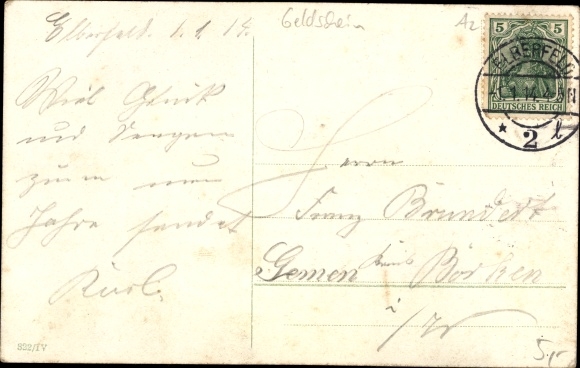 Elberfeld. 1.1.14.
Geldschein
Az
5 5
DEUTSCHES REICH
ELBERFELD
* 2 l
Viel Glück
und Seegen
zum neuen
Jahre sendet
Karl.
Herrn
Franz Brundert
Gemen Kreis Borken
i/W
822/IV
5,-